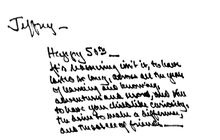 Jeffrey —
Happy 50th —
It's reassuring isn't it, to have
lasted as long, across all the years
of learning and knowing,
adventures and, and also
to have your childlike curiosity,
the drive to make a difference,
and the of friends —